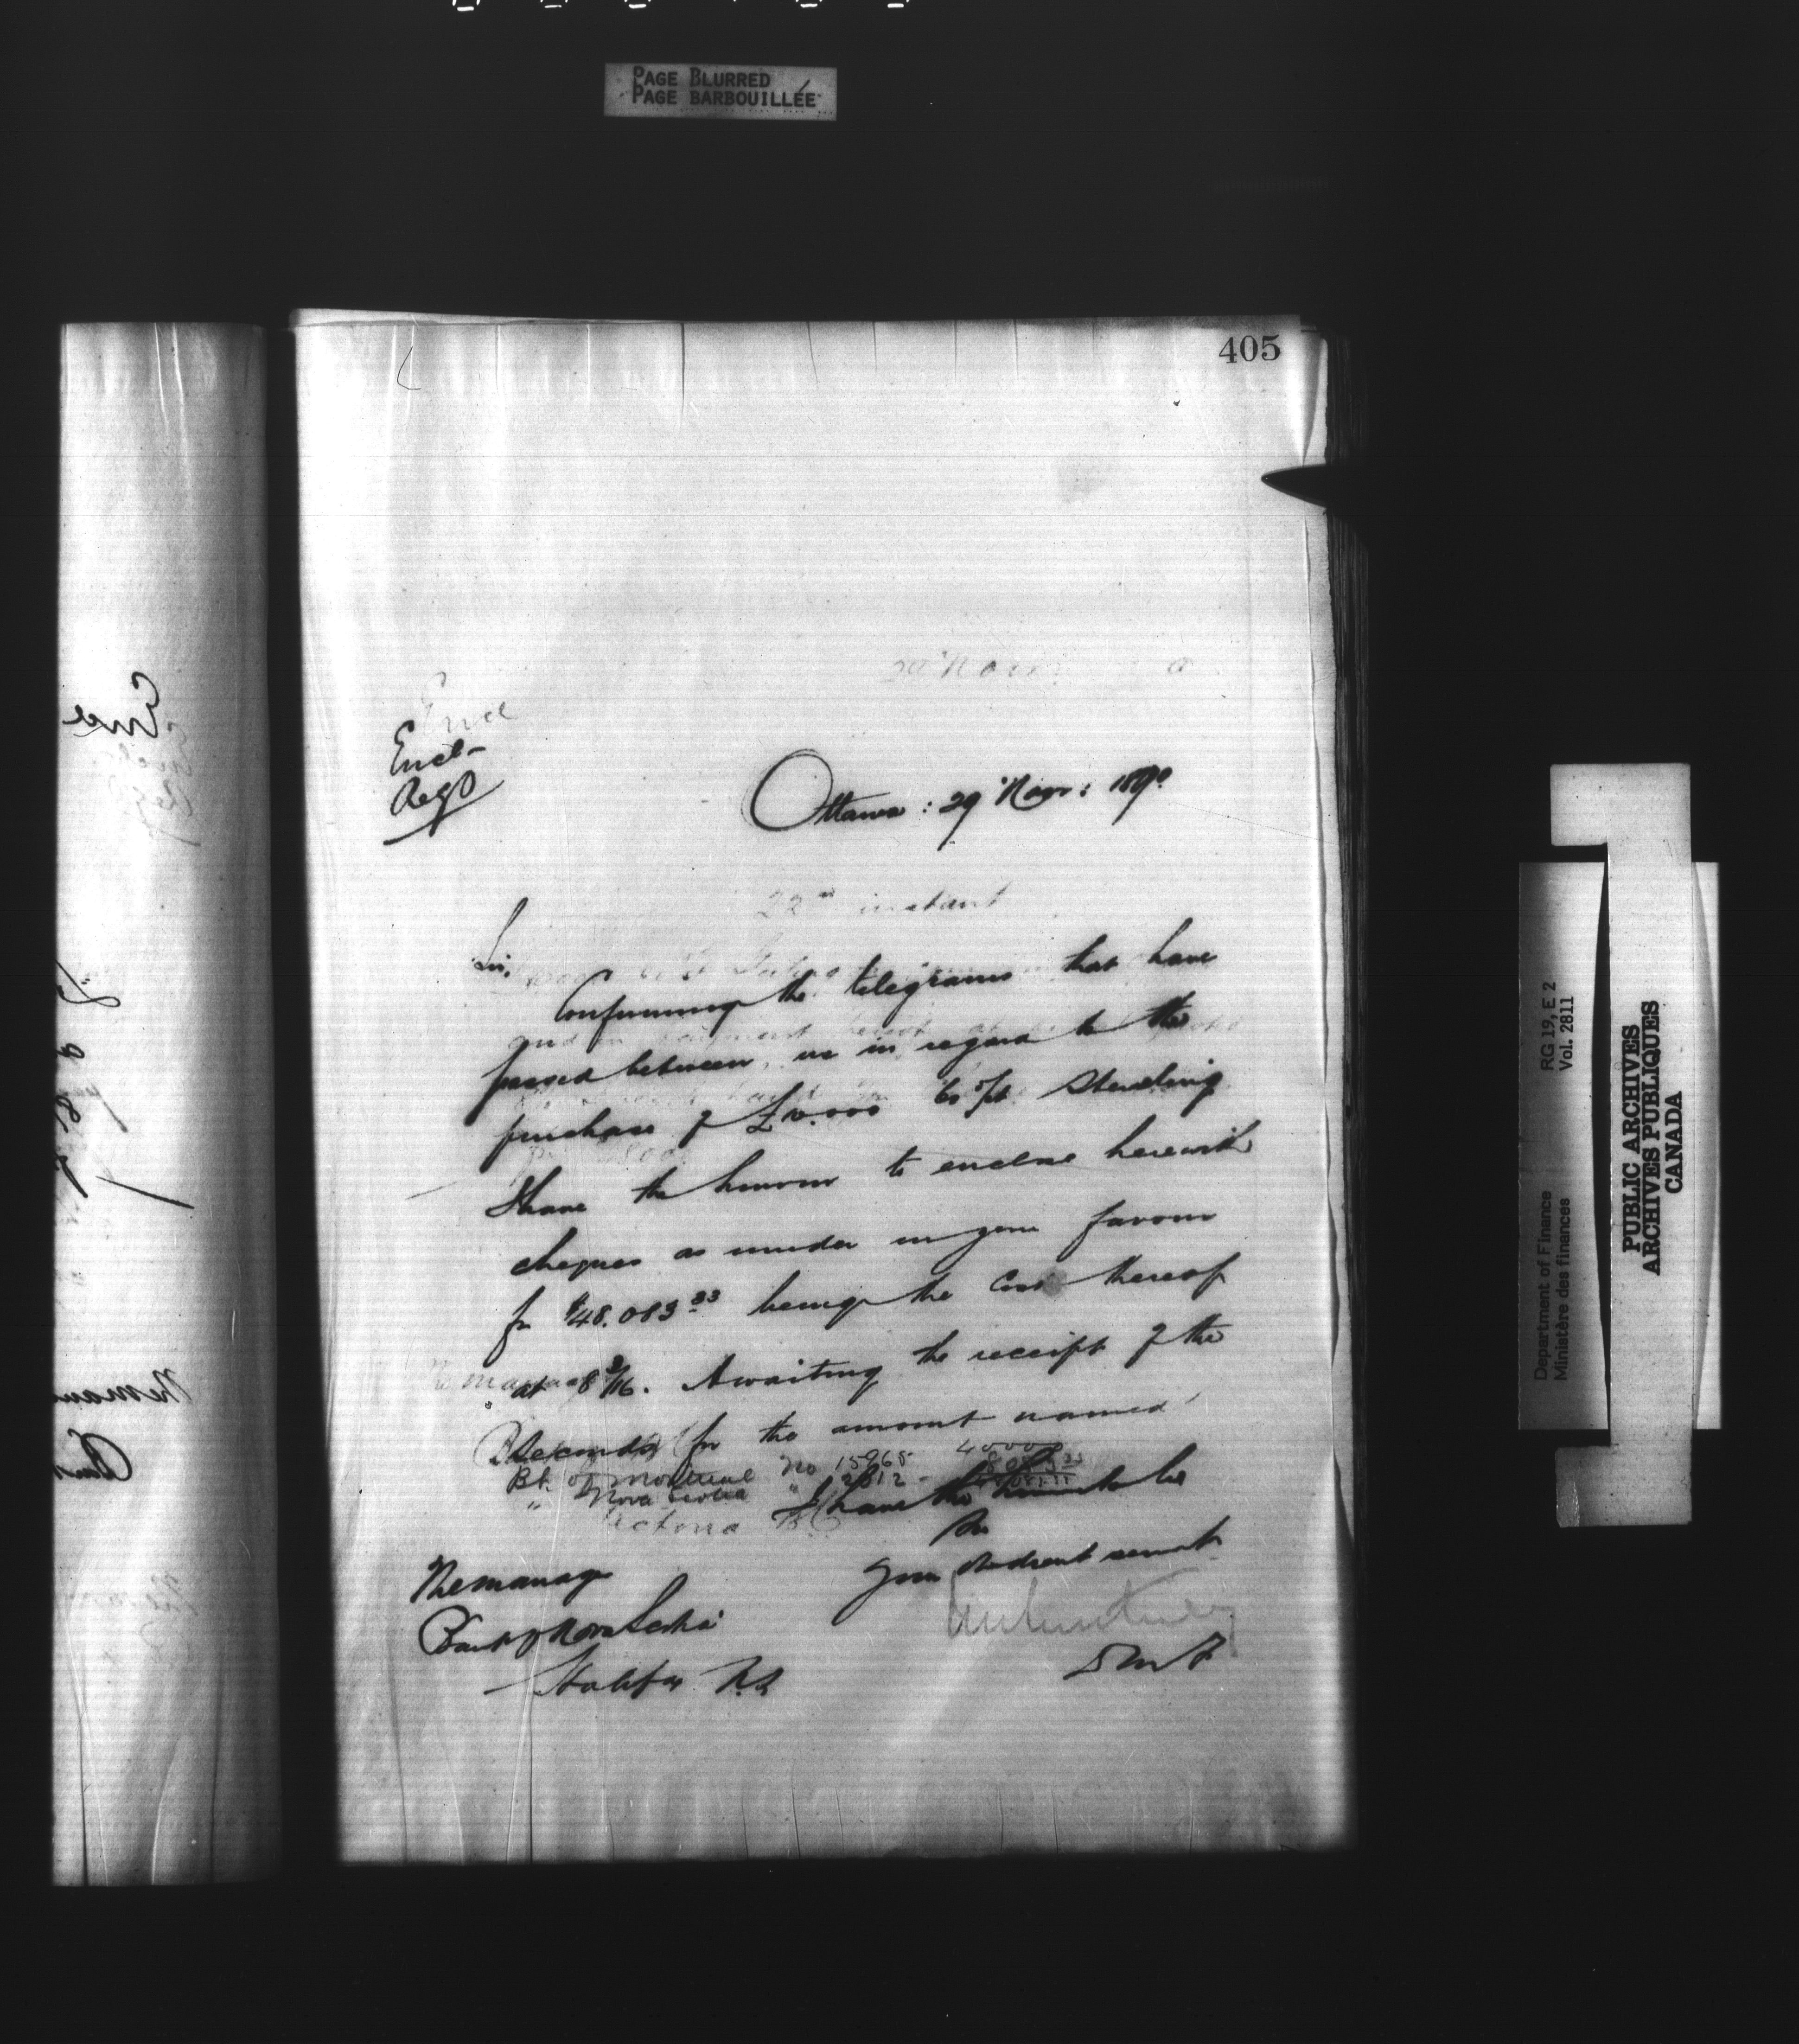 PAGE BLURRED
PAGE BARBOUILLÉE
405
29 Novr
Encl
Encl-
Regd
Ottawa: 29 Novr: 1890
22nd instant
Sir,
Confirming the telegrams that have
passed between us in regard to the
purchase of £10.000 60 d/st Sterling
I have the honour to enclose herewith
cheques as under in your favour
for $48.083 33 being the Cost thereof
at 8 3/16. Awaiting the receipt of the
Seconds for the amount named
Bk of Montreal No 15965 40000
" Nova Scotia " 2812 - 8083 33
Victoria B.C
I have the honour to be
Sir
Your obedient servant
The manager
Bank of Nova Scotia
Halifax N.S.
DMF
Department of Finance RG 19, E 2
Ministère des finances Vol. 2811
PUBLIC ARCHIVES
ARCHIVES PUBLIQUES
CANADA